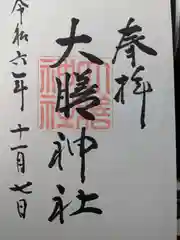 奉拝
大膳神社
令和六年十一月七日